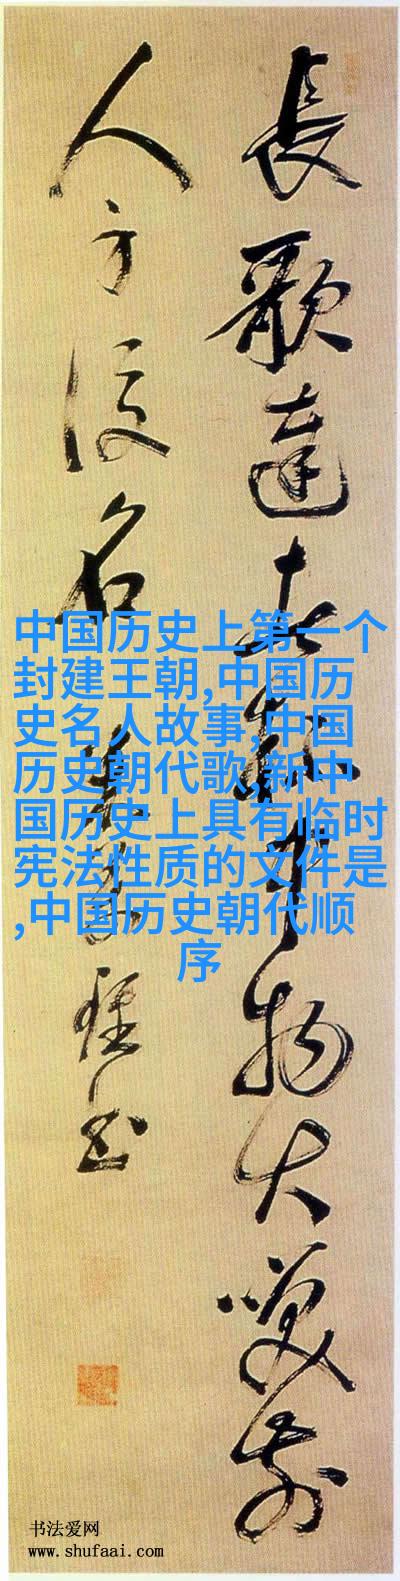 長歌達者杯中物大笑前
人身後名
中国历史上第一个
封建王朝,中国历
史名人故事,中国
历史朝代歌,新中
国历史上具有临时
宪法性质的文件是
,中国历史朝代顺
序
书法爱网
www.shufaai.com